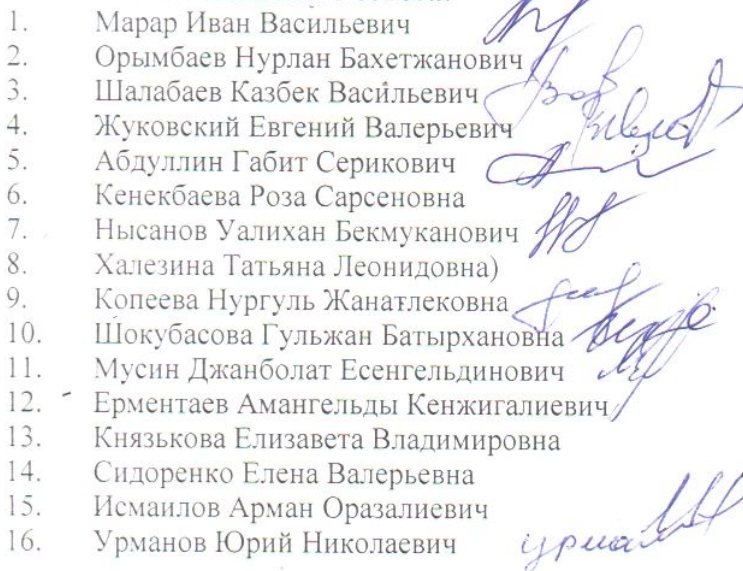 1. Марар Иван Васильевич
2. Орымбаев Нурлан Бахетжанович
3. Шалабаев Казбек Васильевич
4. Жуковский Евгений Валерьевич
5. Абдуллин Габит Серикович
6. Кенекбаева Роза Сарсеновна
7. Нысанов Уалихан Бекмуканович
8. Халезина Татьяна Леонидовна)
9. Копеева Нургуль Жанатлековна
10. Шокубасова Гульжан Батырхановна
11. Мусин Джанболат Есенгельдинович
12. Ерментаев Амангельды Кенжигалиевич
13. Князькова Елизавета Владимировна
14. Сидоренко Елена Валерьевна
15. Исмаилов Арман Оразалиевич
16. Урманов Юрий Николаевич